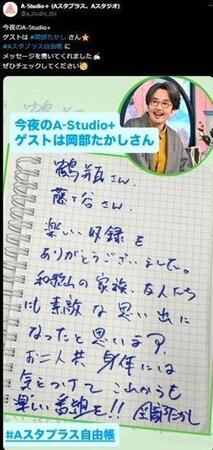 A-Studio+ (Aスタプラス、Aスタジオ)
@a_studio_tbs
今夜のA-Studio+
ゲストは #岡部たかし さん⭐
#Aスタプラス自由帳 に
メッセージを書いてくれました✍
ぜひチェックしてください😊
今夜のA-Studio+
ゲストは岡部たかしさん
鶴瓶さん
藤ヶ谷さん
楽しい収録を
ありがとうございました。
和歌山の家族、友人たち
にも素敵な思い出に
なったと思います。
お二人共、身体には
気をつけて、これからも
楽しい番組を!! 岡部たかし
#Aスタプラス自由帳